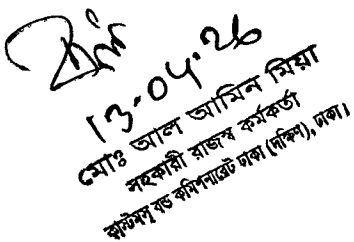 13-04-26
মোঃ আল আমিন মিয়া
সহকারী রাজস্ব কর্মকর্তা
কাস্টমস্ বন্ড কমিশনারেট ঢাকা (দক্ষিণ), ঢাকা।